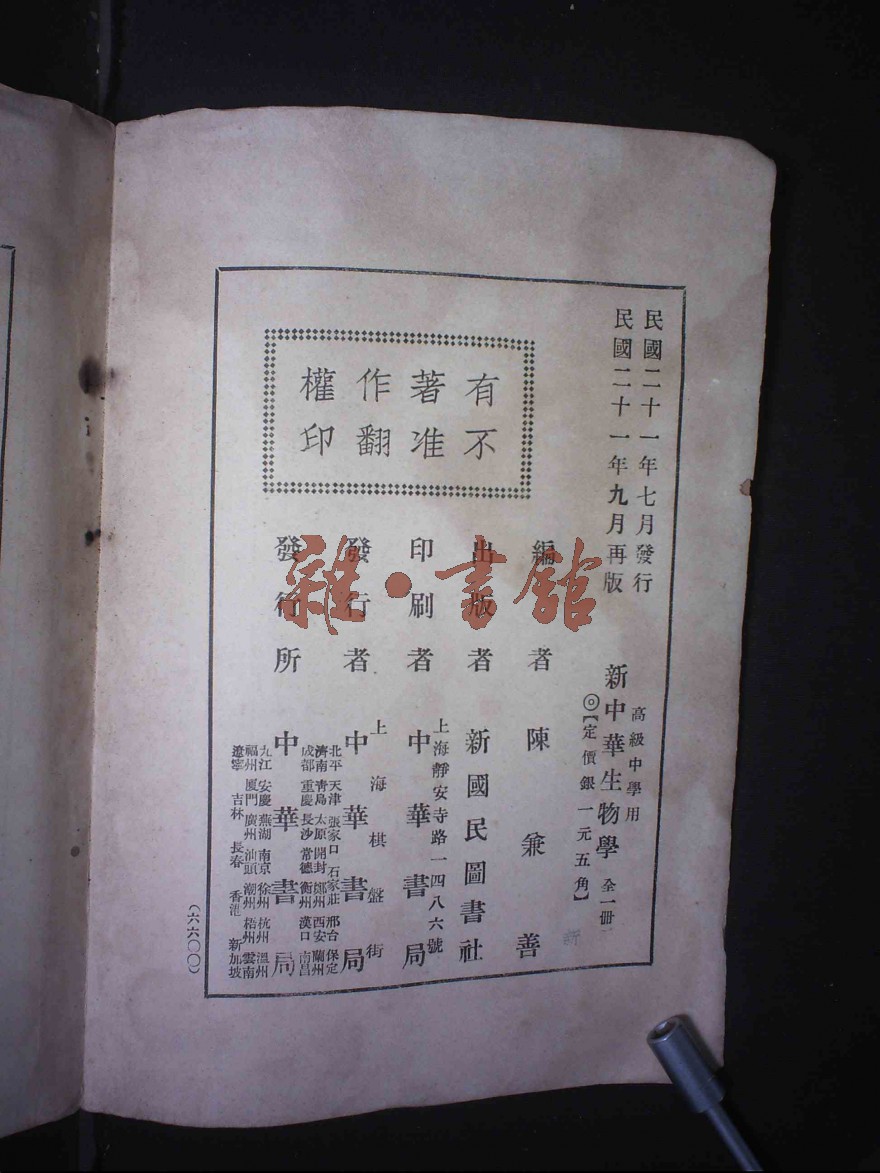 民國二十一年七月發行
民國二十一年九月再版
高級中學用
新中華生物學 全一冊
◎【定價銀一元五角】
有著作權
不准翻印
編者 陳兼善
出版者 新國民圖書社
上海靜安寺路一四八六號
印刷者 中華書局
上海棋盤街
發行者 中華書局
北平 天津 張家口 石家莊 邢台 保定
濟南 青島 太原 開封 鄭州 西安 蘭州
成都 重慶 長沙 常德 衡州 漢口 南昌
發行所 中華書局
九江 安慶 蕪湖 南京 徐州 杭州 溫州
福州 廈門 廣州 汕頭 潮州 梧州 雲南
遼寧 吉林 長春 香港 新加坡
(六六〇〇)
雜·書館